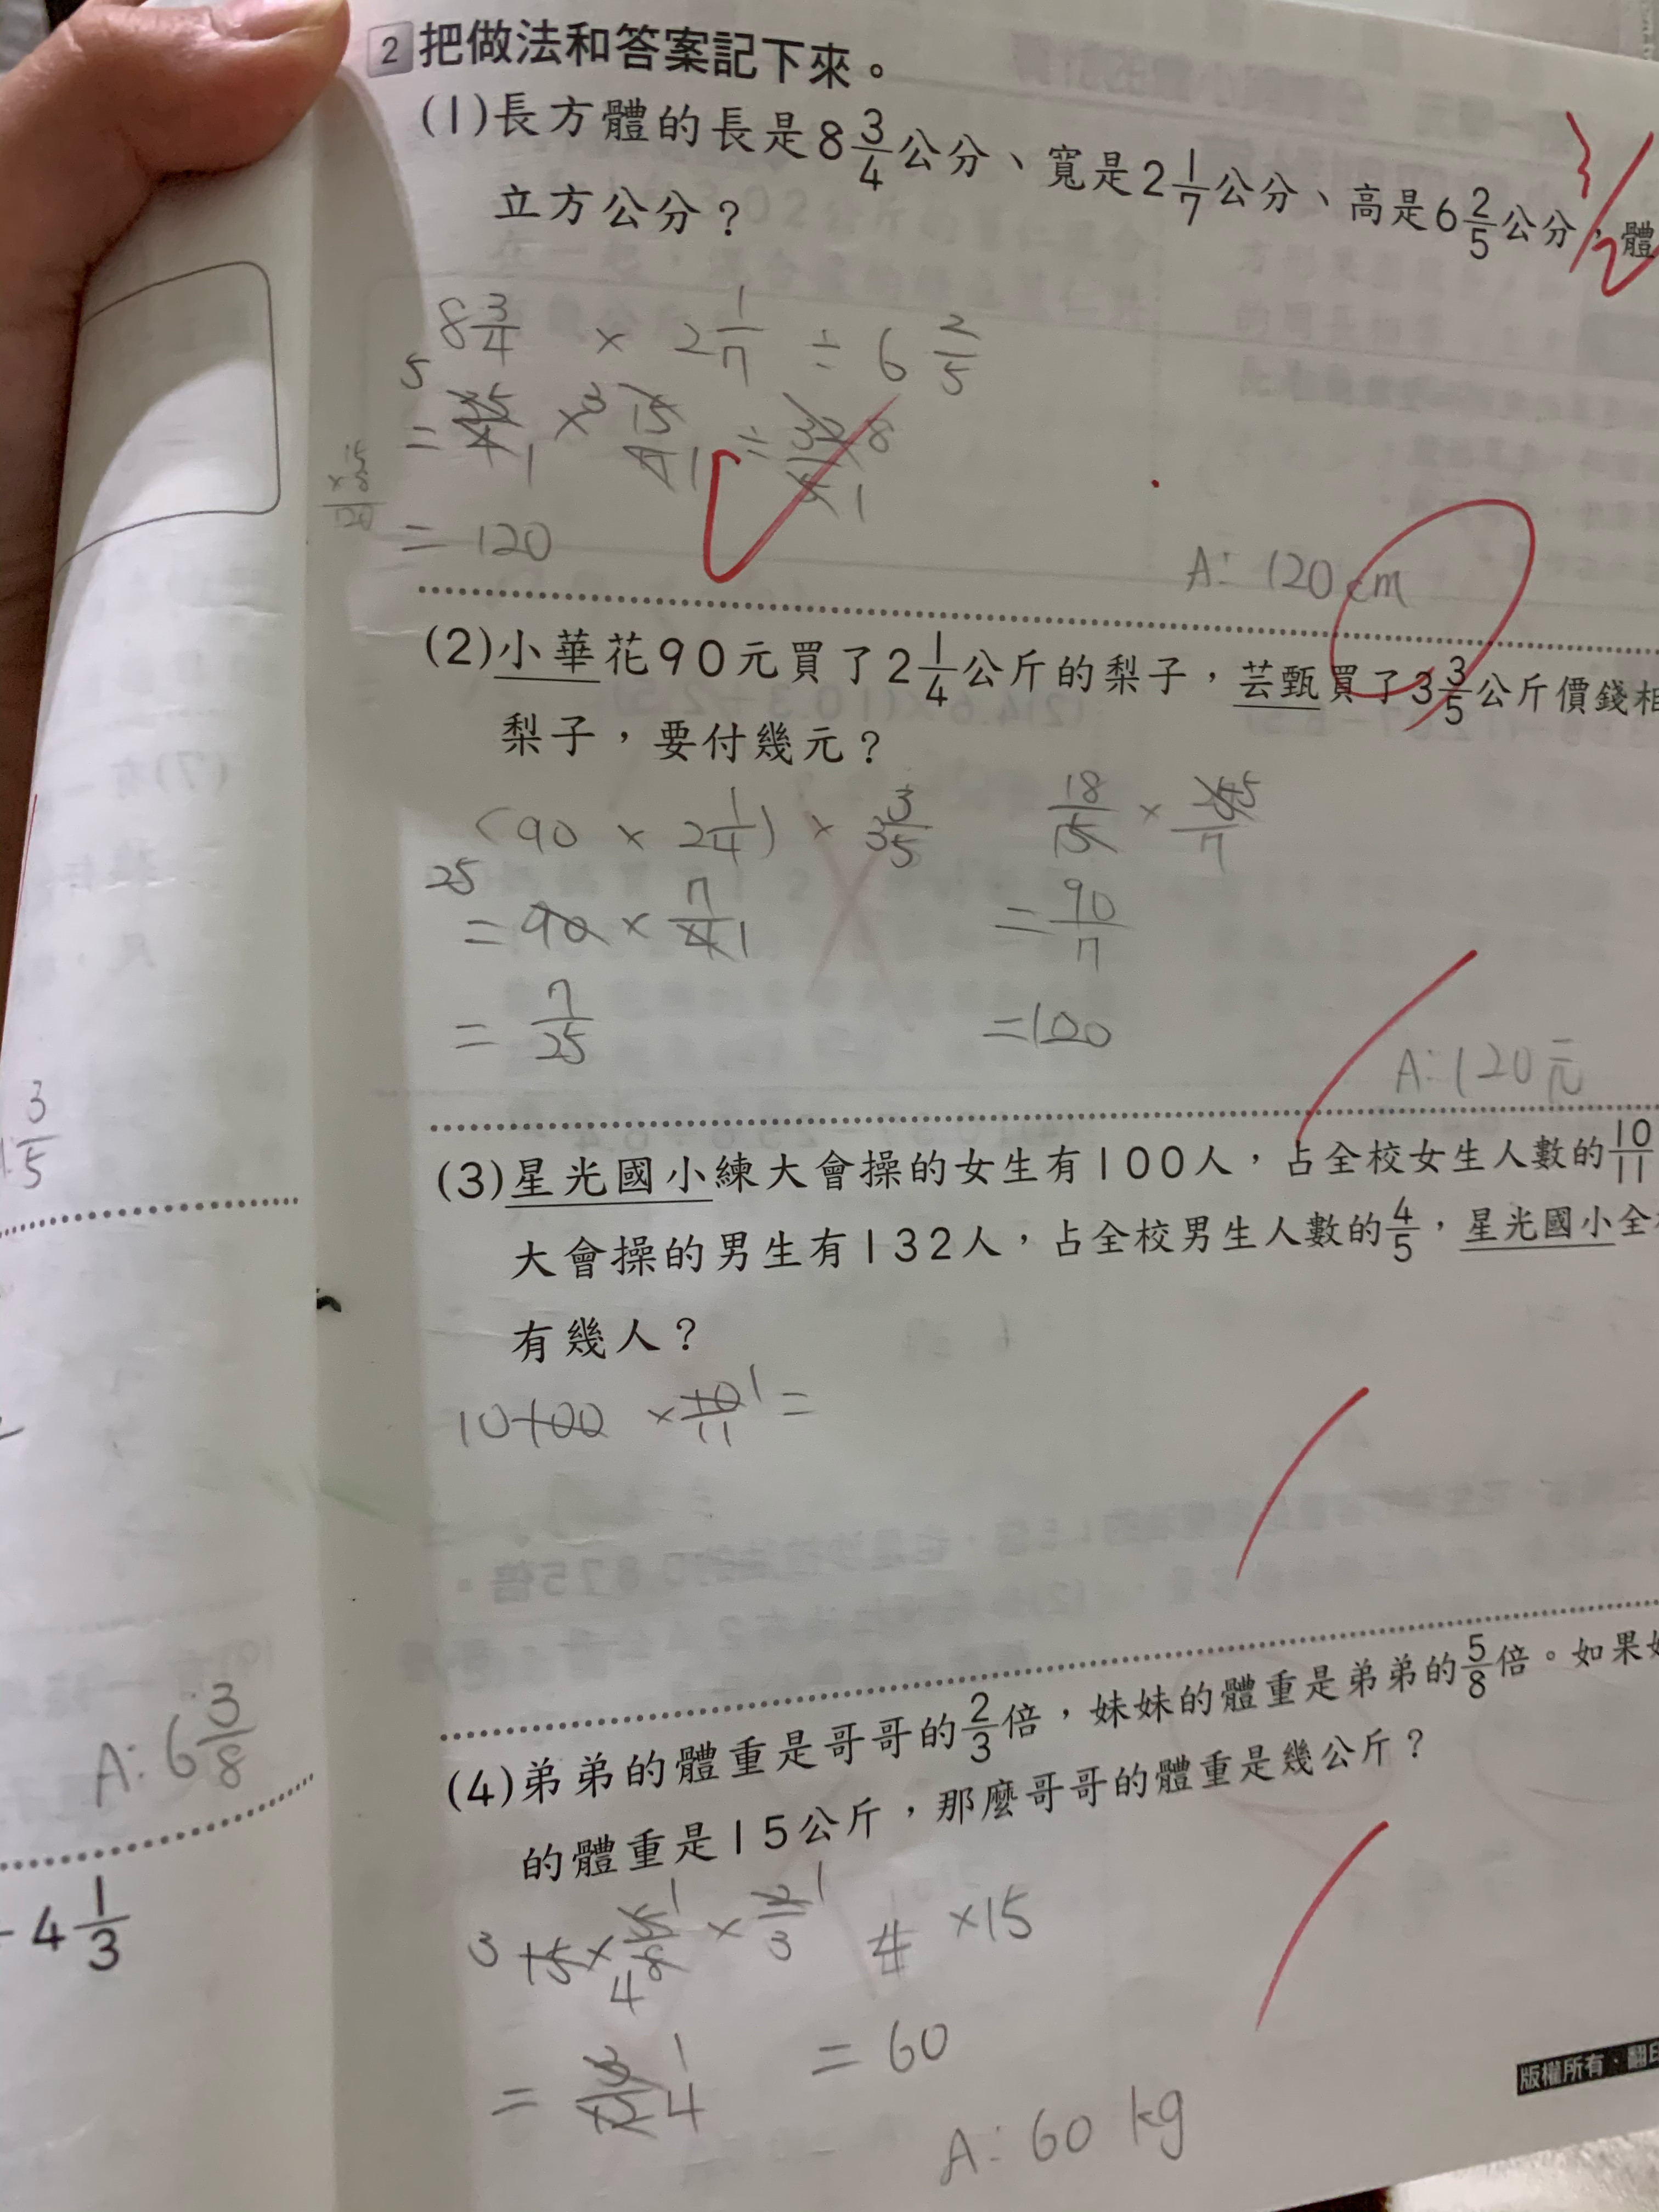 2 把做法和答案記下來。
(1)長方體的長是8 3/4公分、寬是2 1/7公分、高是6 2/5公分，體
立方公分？
8 3/4 × 2 1/7 ÷ 6 2/5
= 35/4 × 15/7 ÷ 32/5
5 1 3 1 8 1
15
×8
120
= 120
A: 120 cm
(2)小華花90元買了2 1/4公斤的梨子，芸甄買了3 3/5公斤價錢相
梨子，要付幾元？
(90 × 2 1/4) × 3 3/5
25
= 90 × 7/4 1
= 7/25
18/5 ×
= 90/7
=100
A: 120元
(3)星光國小練大會操的女生有100人，占全校女生人數的10/11
大會操的男生有132人，占全校男生人數的4/5，星光國小全
有幾人？
10 100 × 10/11 1 =
(4)弟弟的體重是哥哥的2/3倍，妹妹的體重是弟弟的5/8倍。如果
的體重是15公斤，那麼哥哥的體重是幾公斤？
3 15 × 5/8 × 2/3
1 4 1
× 15
= 3/12 1 4
= 60
A: 60 kg
版權所有・翻印
3/5
A: 6 3/8
4 1/3